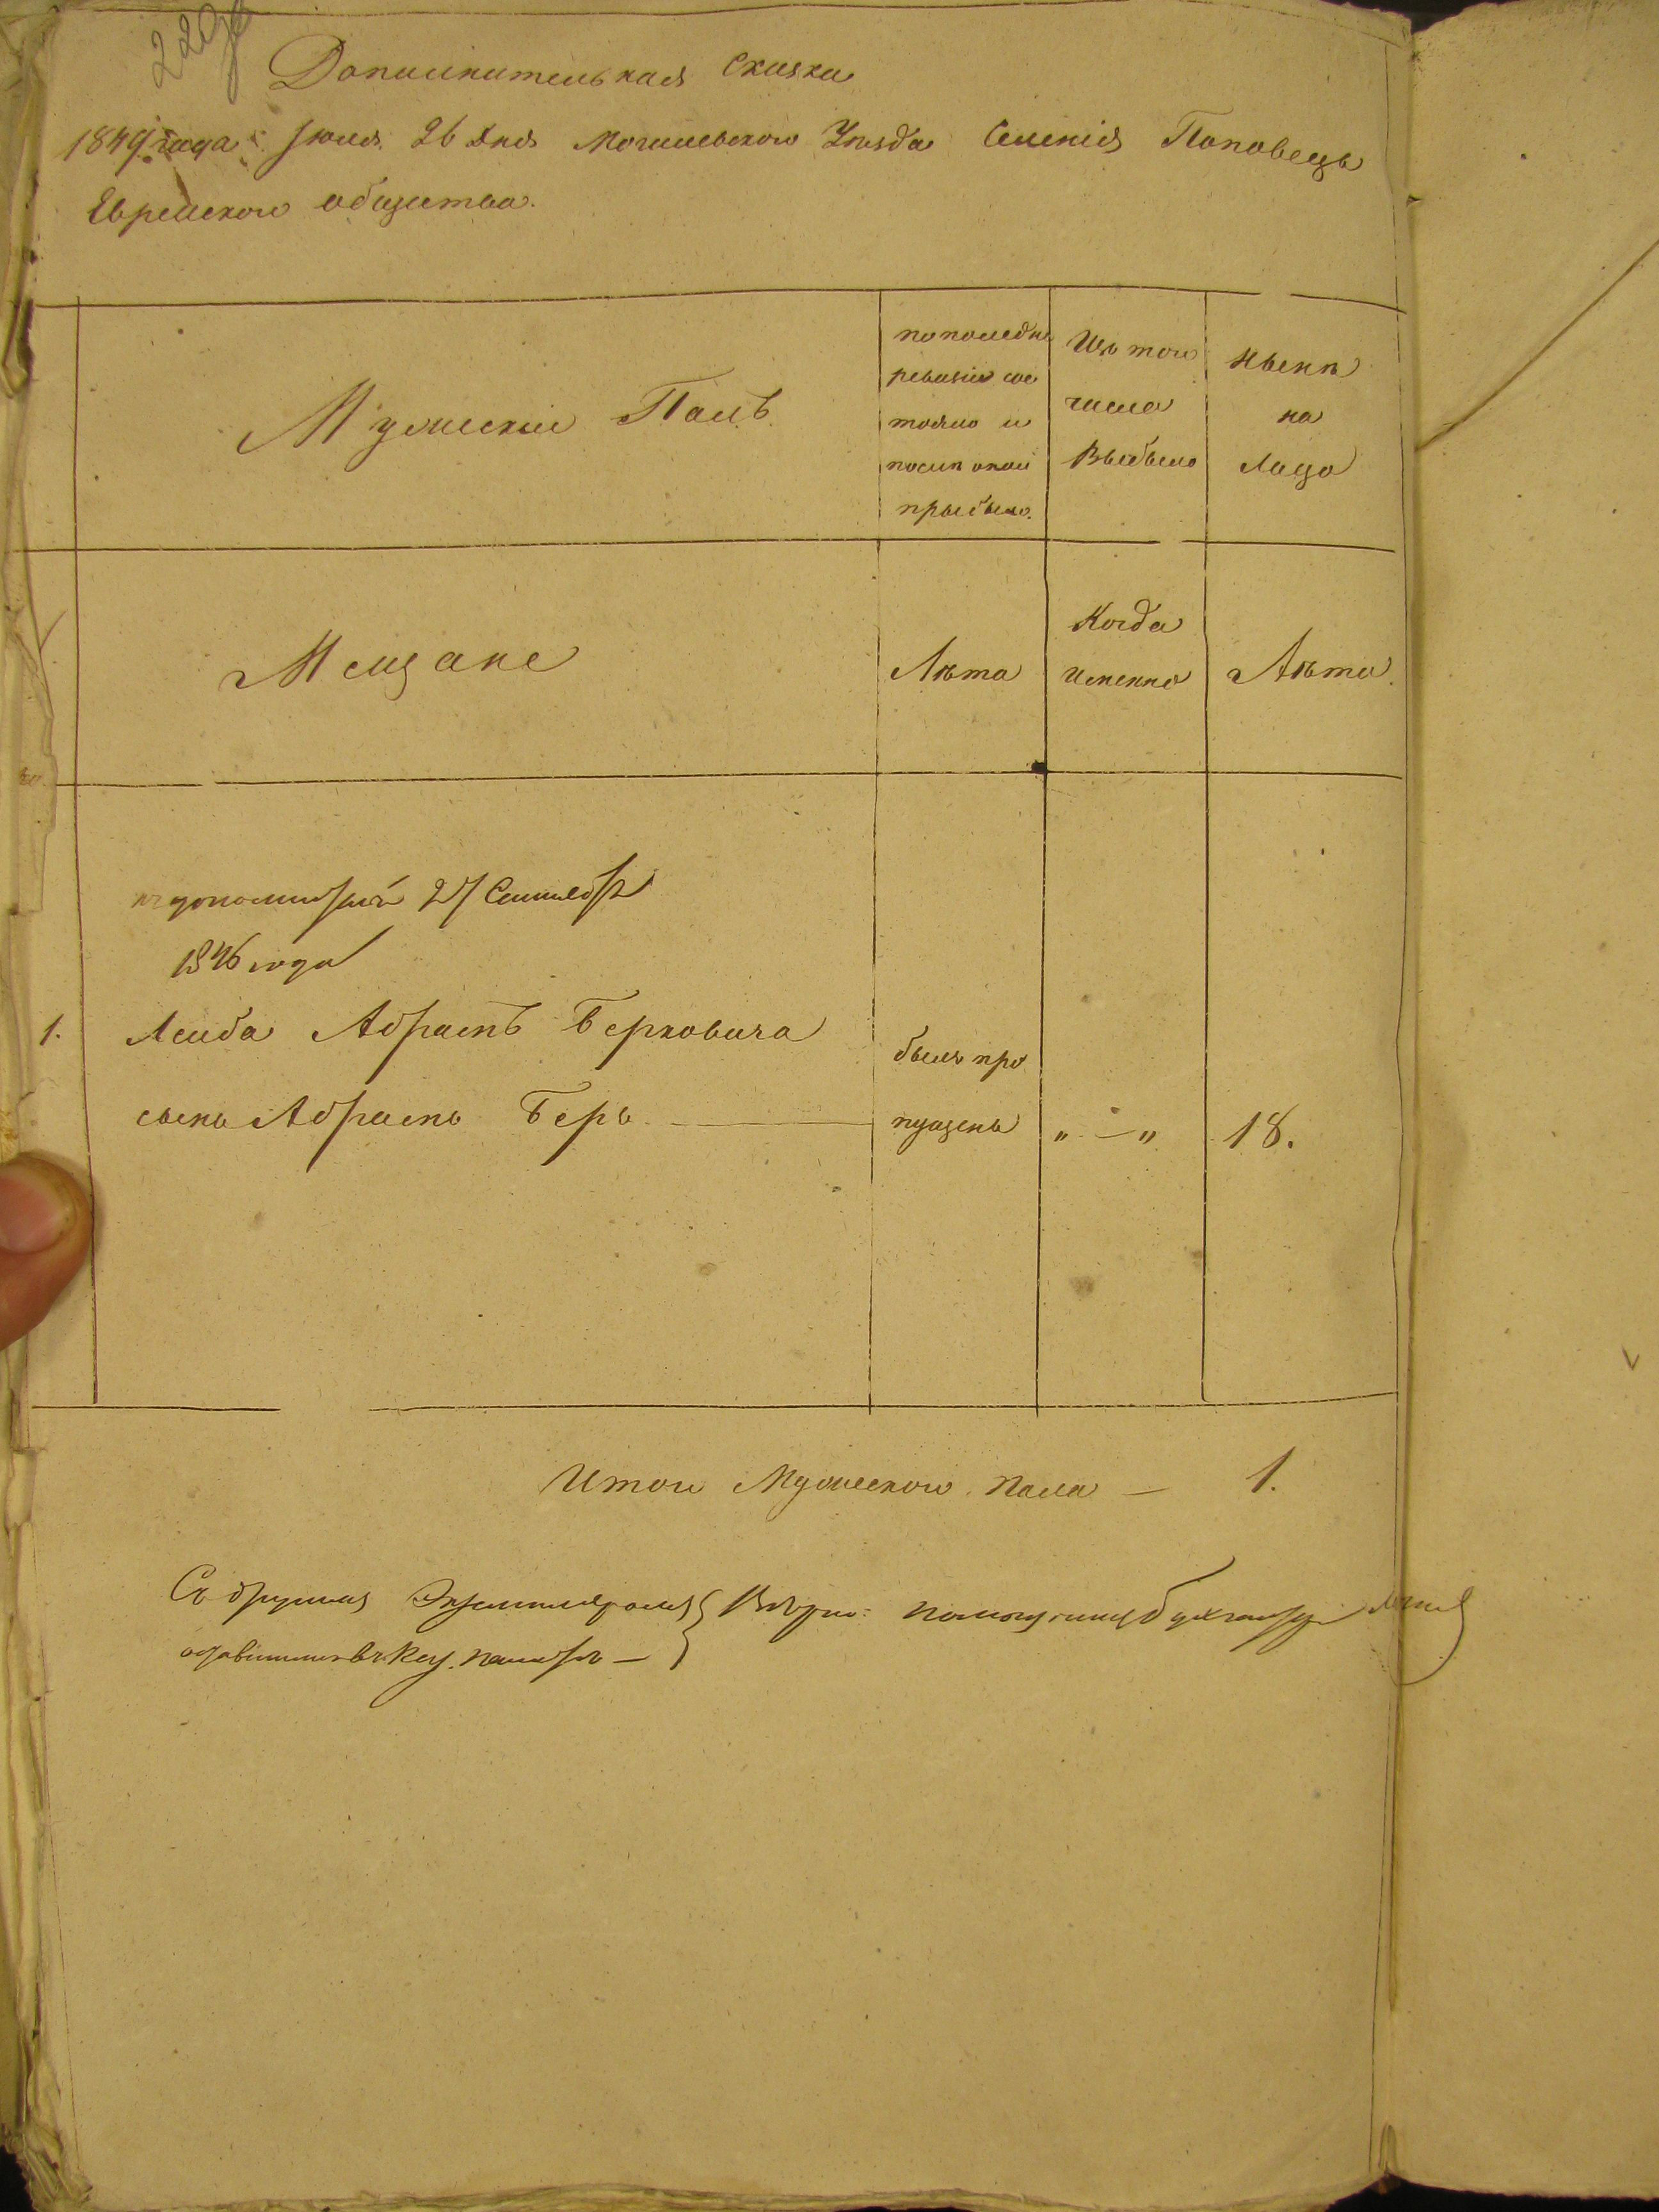 Дополнительная Сказка
1849 года Июля 26 дня Могилевского Уезда Селенія Поповецъ
Еврейского общества.
Мужескій Полъ.
по последней
ревизіи сос
тояло и
после оной
прыбыло.
Изъ того
числа
Выбыло
Ныне
на
Лицо
Мещане
Лѣта
Когда
именно
Лѣта.
27 Сентября
1846 года
1. Лейба Абрамъ Берковича
сынъ Абрамъ Беръ
былъ про
пущенъ „ — „ 18.
Итого Мужеского пола — 1.
Съ другимъ Экземпляромъ } Вѣрно: